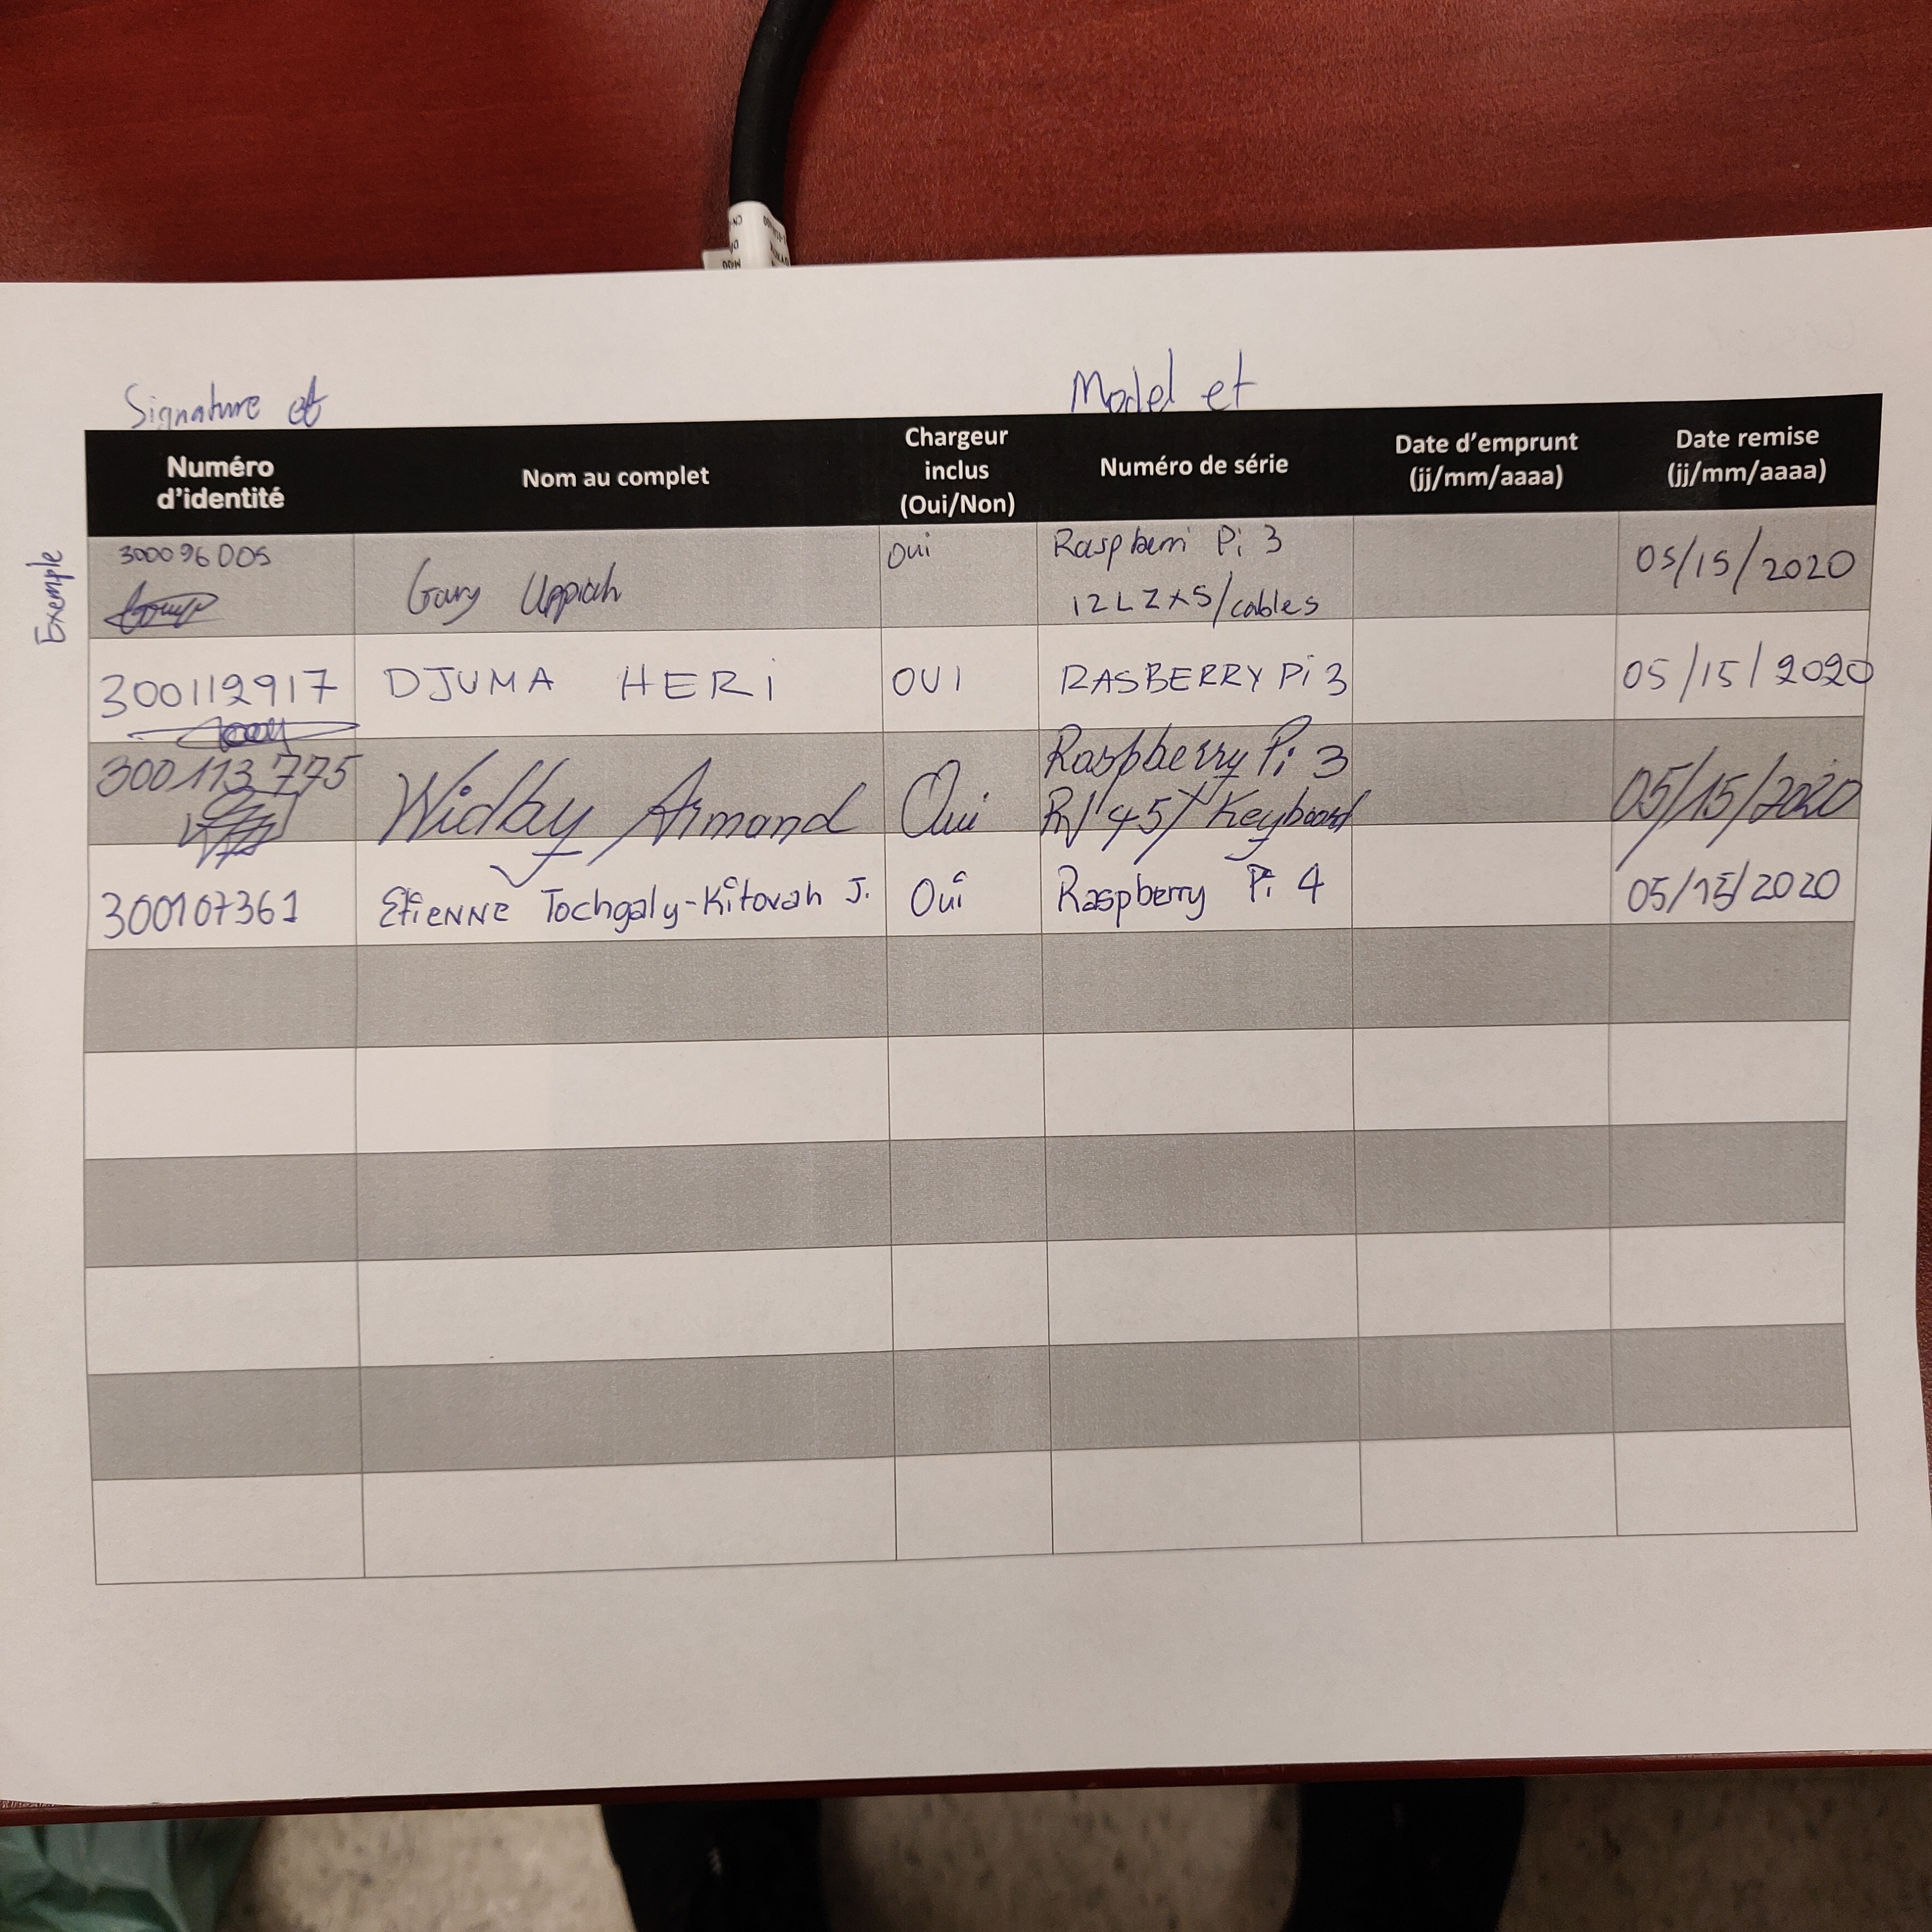 Signature et
Model et
Numéro d'identité
Nom au complet
Chargeur inclus (Oui/Non)
Numéro de série
Date d'emprunt (jj/mm/aaaa)
Date remise (jj/mm/aaaa)
Exemple
300096005 Gary Uppiah oui Raspberri Pi 3 05/15/2020
12LZXS/cables
300112917 DJUMA HERi OUI RASBERRY Pi 3 05/15/2020
300113775 Widby Armand Oui Raspberry Pi 3 05/15/2020
RJ45/Keyboard
300107361 EtiENNE Tochgaly-Kitovah J. Oui Raspberry Pi 4 05/15/2020